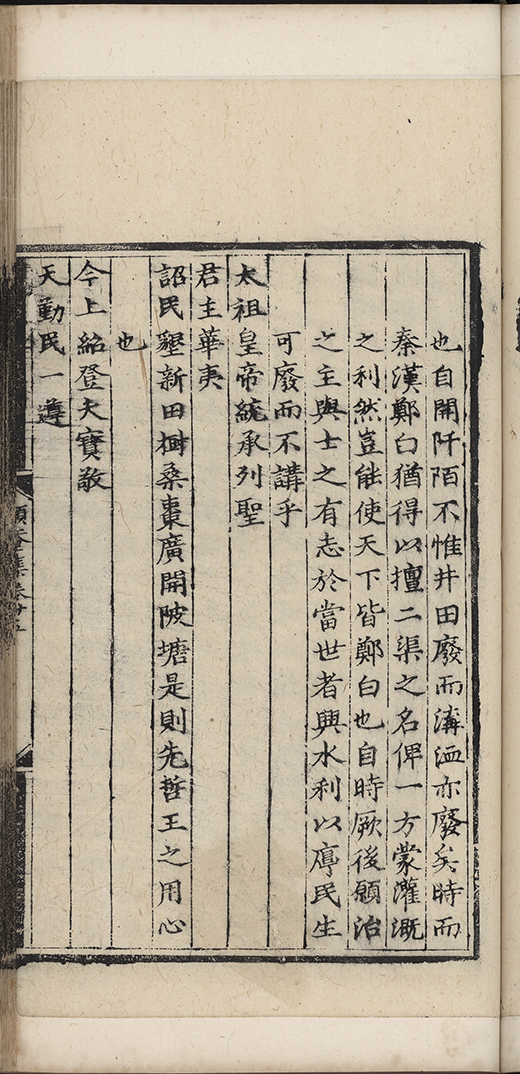 也自開阡陌不惟井田廢而溝洫亦廢矣時而
秦漢鄭白猶得以擅二渠之名俾一方蒙灌溉
之利然豈能使天下皆鄭白也自時厥後願治
之主與士之有志於當世者興水利以厚民生
可廢而不講乎
太祖皇帝統承列聖
君主華夷
詔民墾新田樹桑棗廣開陂塘是則先哲王之用心
也
今上紹登大寶敬
天勤民一遵
頤菴集卷廿五